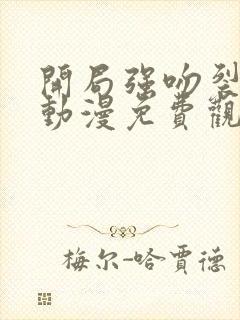 開局強吻裂
動漫免費觀
梅尔-哈賈德